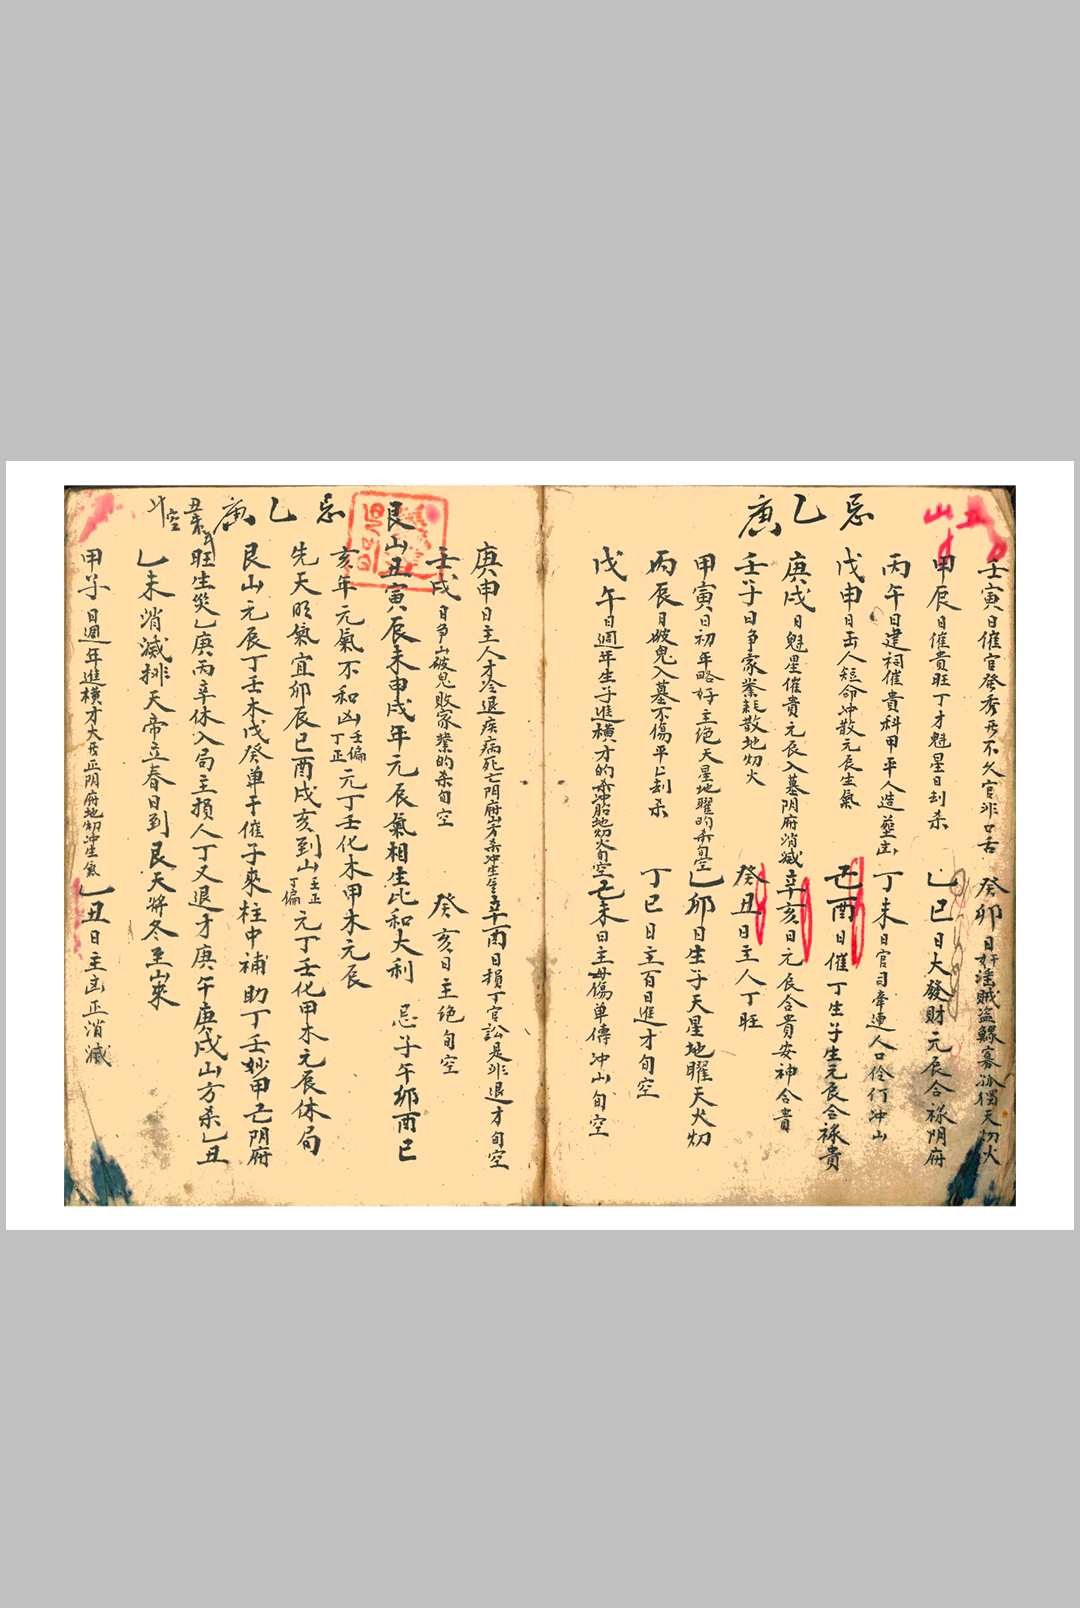 忌乙庚
丑山
壬寅日催官登秀才不久官非口舌 癸卯日奸淫賊盜鰥寡孤獨天刼火
甲辰日催貴旺丁才魁星日刦杀 乙巳日大發財元辰合祿阴府
丙午日建祠催貴科甲平人造塟凶 丁未日官司牽連人口伶仃冲山
戊申日缶人短命冲散元辰生氣 己酉日催丁生子生元辰合祿貴
庚戌日魁星催貴元辰入墓阴府消滅 辛亥日元辰合貴安神合貴
壬子日争家業耗散地刼火 癸丑日主人丁旺
甲寅日初年略好主绝天星地曜的杀旬空 乙卯日生子天星地曜天火刼
丙辰日破鬼入墓不傷平占刦杀 丁巳日主百日進才旬空
戊午日週年生子進横才的杀冲胎地刼火旬空 己未日主母傷单傳冲山旬空
庚申日主人才冷退疾病死亡阴府山方杀冲生氣 辛酉日損丁官訟是非退才旬空
壬戌日争山破鬼敗家業的杀旬空 癸亥日主绝旬空
忌乙庚
艮山丑寅辰未申戌年元辰氣相生比和大利 忌子午卯酉巳
亥年元氣不和凶壬偏丁正元丁壬化木甲木元辰
先天旺氣宜卯辰巳酉戌亥到山壬正丁偏元丁壬化甲木元辰休局
艮山元辰丁壬木戊癸单于催子來柱中補助丁壬妙甲己阴府
旺生災乙庚丙辛休入局主損人丁又退才庚午庚戌山方杀乙丑
乙未消滅排天帝立春日到艮天將冬至山來
甲子日週年進横才大吉正阴府地刼冲生氣 乙丑日主凶正消滅